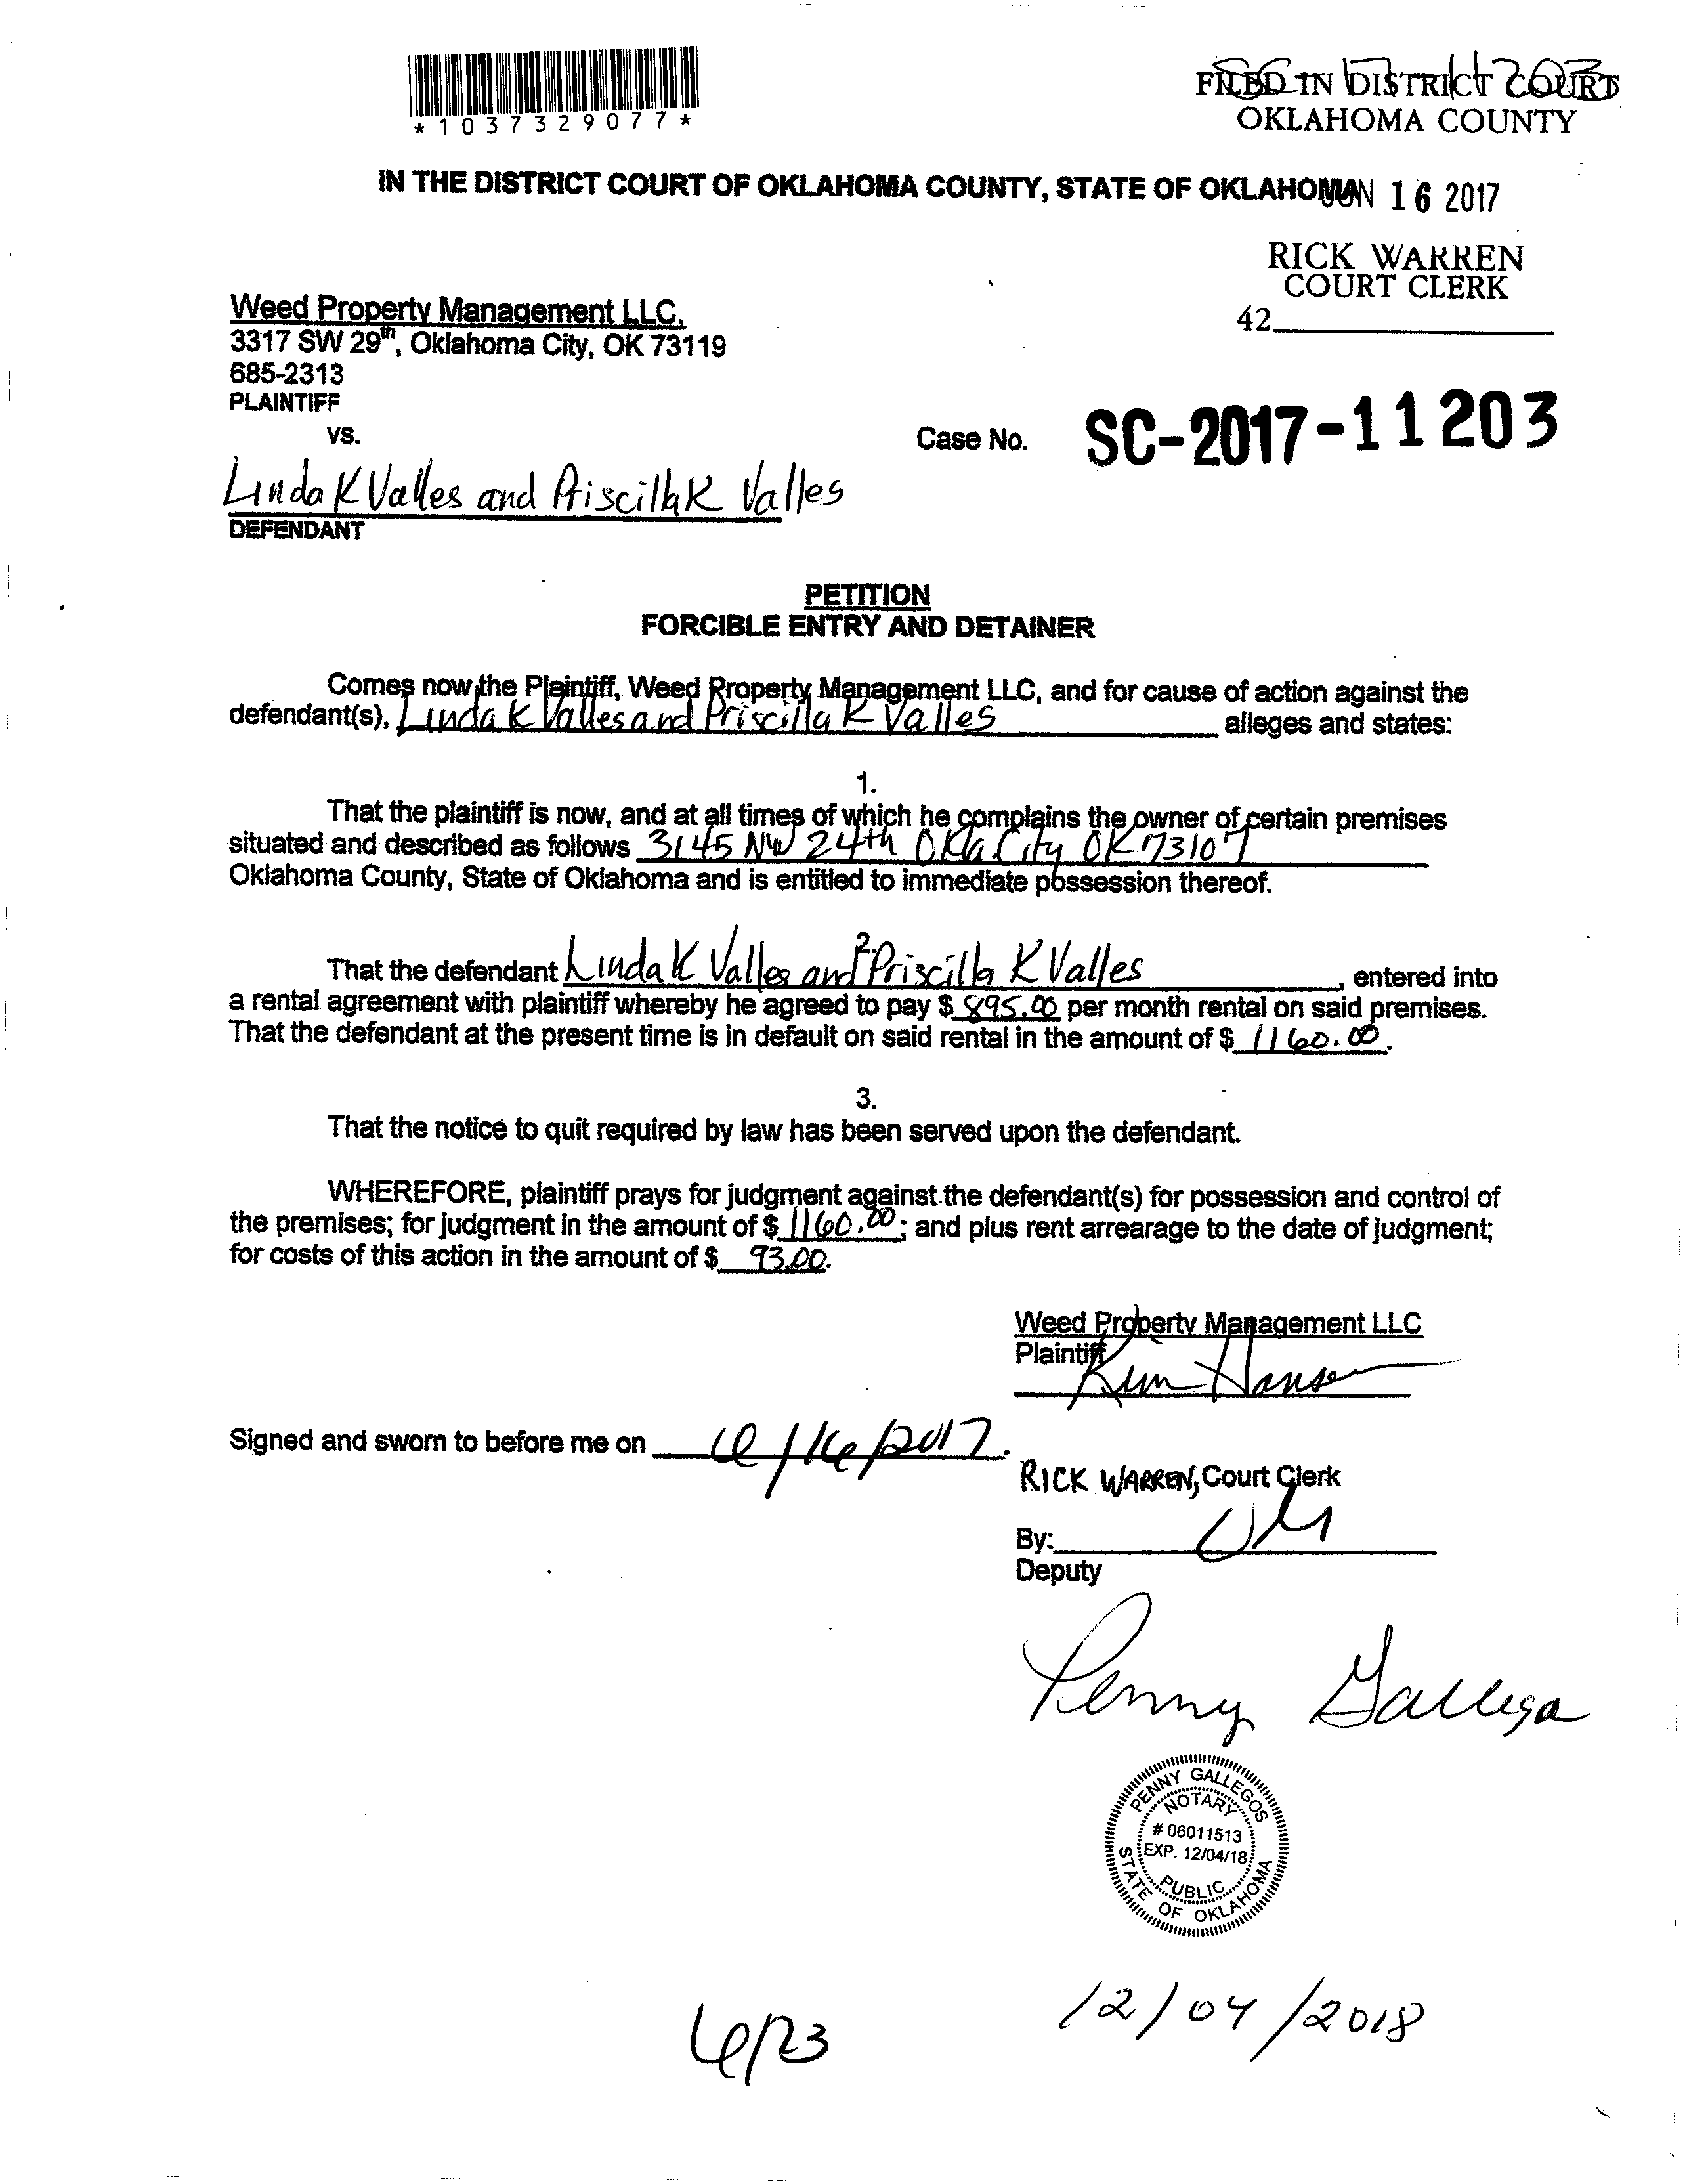 *1037329077*
FILED IN DISTRICT COURT
OKLAHOMA COUNTY
IN THE DISTRICT COURT OF OKLAHOMA COUNTY, STATE OF OKLAHOMA
JUN 16 2017
RICK WARREN
COURT CLERK
42
Weed Property Management LLC.
3317 SW 29th, Oklahoma City, OK 73119
685-2313
PLAINTIFF
vs.
Case No. SC-2017-11203
Linda K Valles and Priscilla K Valles
DEFENDANT
PETITION
FORCIBLE ENTRY AND DETAINER
Comes now the Plaintiff, Weed Property Management LLC, and for cause of action against the
defendant(s), Linda K Valles and Priscilla K Valles alleges and states:
1.
That the plaintiff is now, and at all times of which he complains the owner of certain premises
situated and described as follows 3145 NW 24th Okla City OK 73107
Oklahoma County, State of Oklahoma and is entitled to immediate possession thereof.
2.
That the defendant Linda K Valles and Priscilla K Valles, entered into
a rental agreement with plaintiff whereby he agreed to pay $ 895.00 per month rental on said premises.
That the defendant at the present time is in default on said rental in the amount of $ 1160.00.
3.
That the notice to quit required by law has been served upon the defendant.
WHEREFORE, plaintiff prays for judgment against the defendant(s) for possession and control of
the premises; for judgment in the amount of $ 1160.00; and plus rent arrearage to the date of judgment;
for costs of this action in the amount of $ 93.00.
Weed Property Management LLC
Plaintiff
Kim Hansen
Signed and sworn to before me on 6/16/2017.
RICK WARREN, Court Clerk
By:
Deputy
Penny Gallegos
PENNY GALLEGOS
NOTARY
# 06011513
EXP. 12/04/18
PUBLIC
STATE OF OKLAHOMA
12/04/2018
6/23